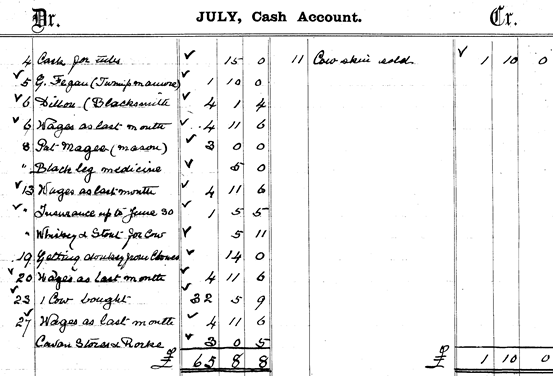 Dr. JULY, Cash Account. Cr.
4 Cash for tubs ✓ 15 0 11 Cow skin sold ✓ 1 10 0
✓ 5 G. Fegan (Turnip manure) ✓ 1 10 0
✓ 6 Dillon (Blacksmith ✓ 4 1 4
✓ 6 Wages as last month ✓ 4 11 6
8 Pat Magee (mason) ✓ 3 0 0
" Black leg medicine ✓ 5 0
✓ 13 Wages as last month ✓ 4 11 6
✓ " Insurance up to June 30 ✓ 1 5 5
" Whiskey & Stout for Cow ✓ 5 11
19 Getting donkey from Clones ✓ 14 0
✓ 20 Wages as last month ✓ 4 11 6
✓ 23 1 Cow bought ✓ 32 5 9
✓ 27 Wages as last month ✓ 4 11 6
Cowan Stores & Rorke ✓ 3 0 5
£ 65 8 8 £ 1 10 0